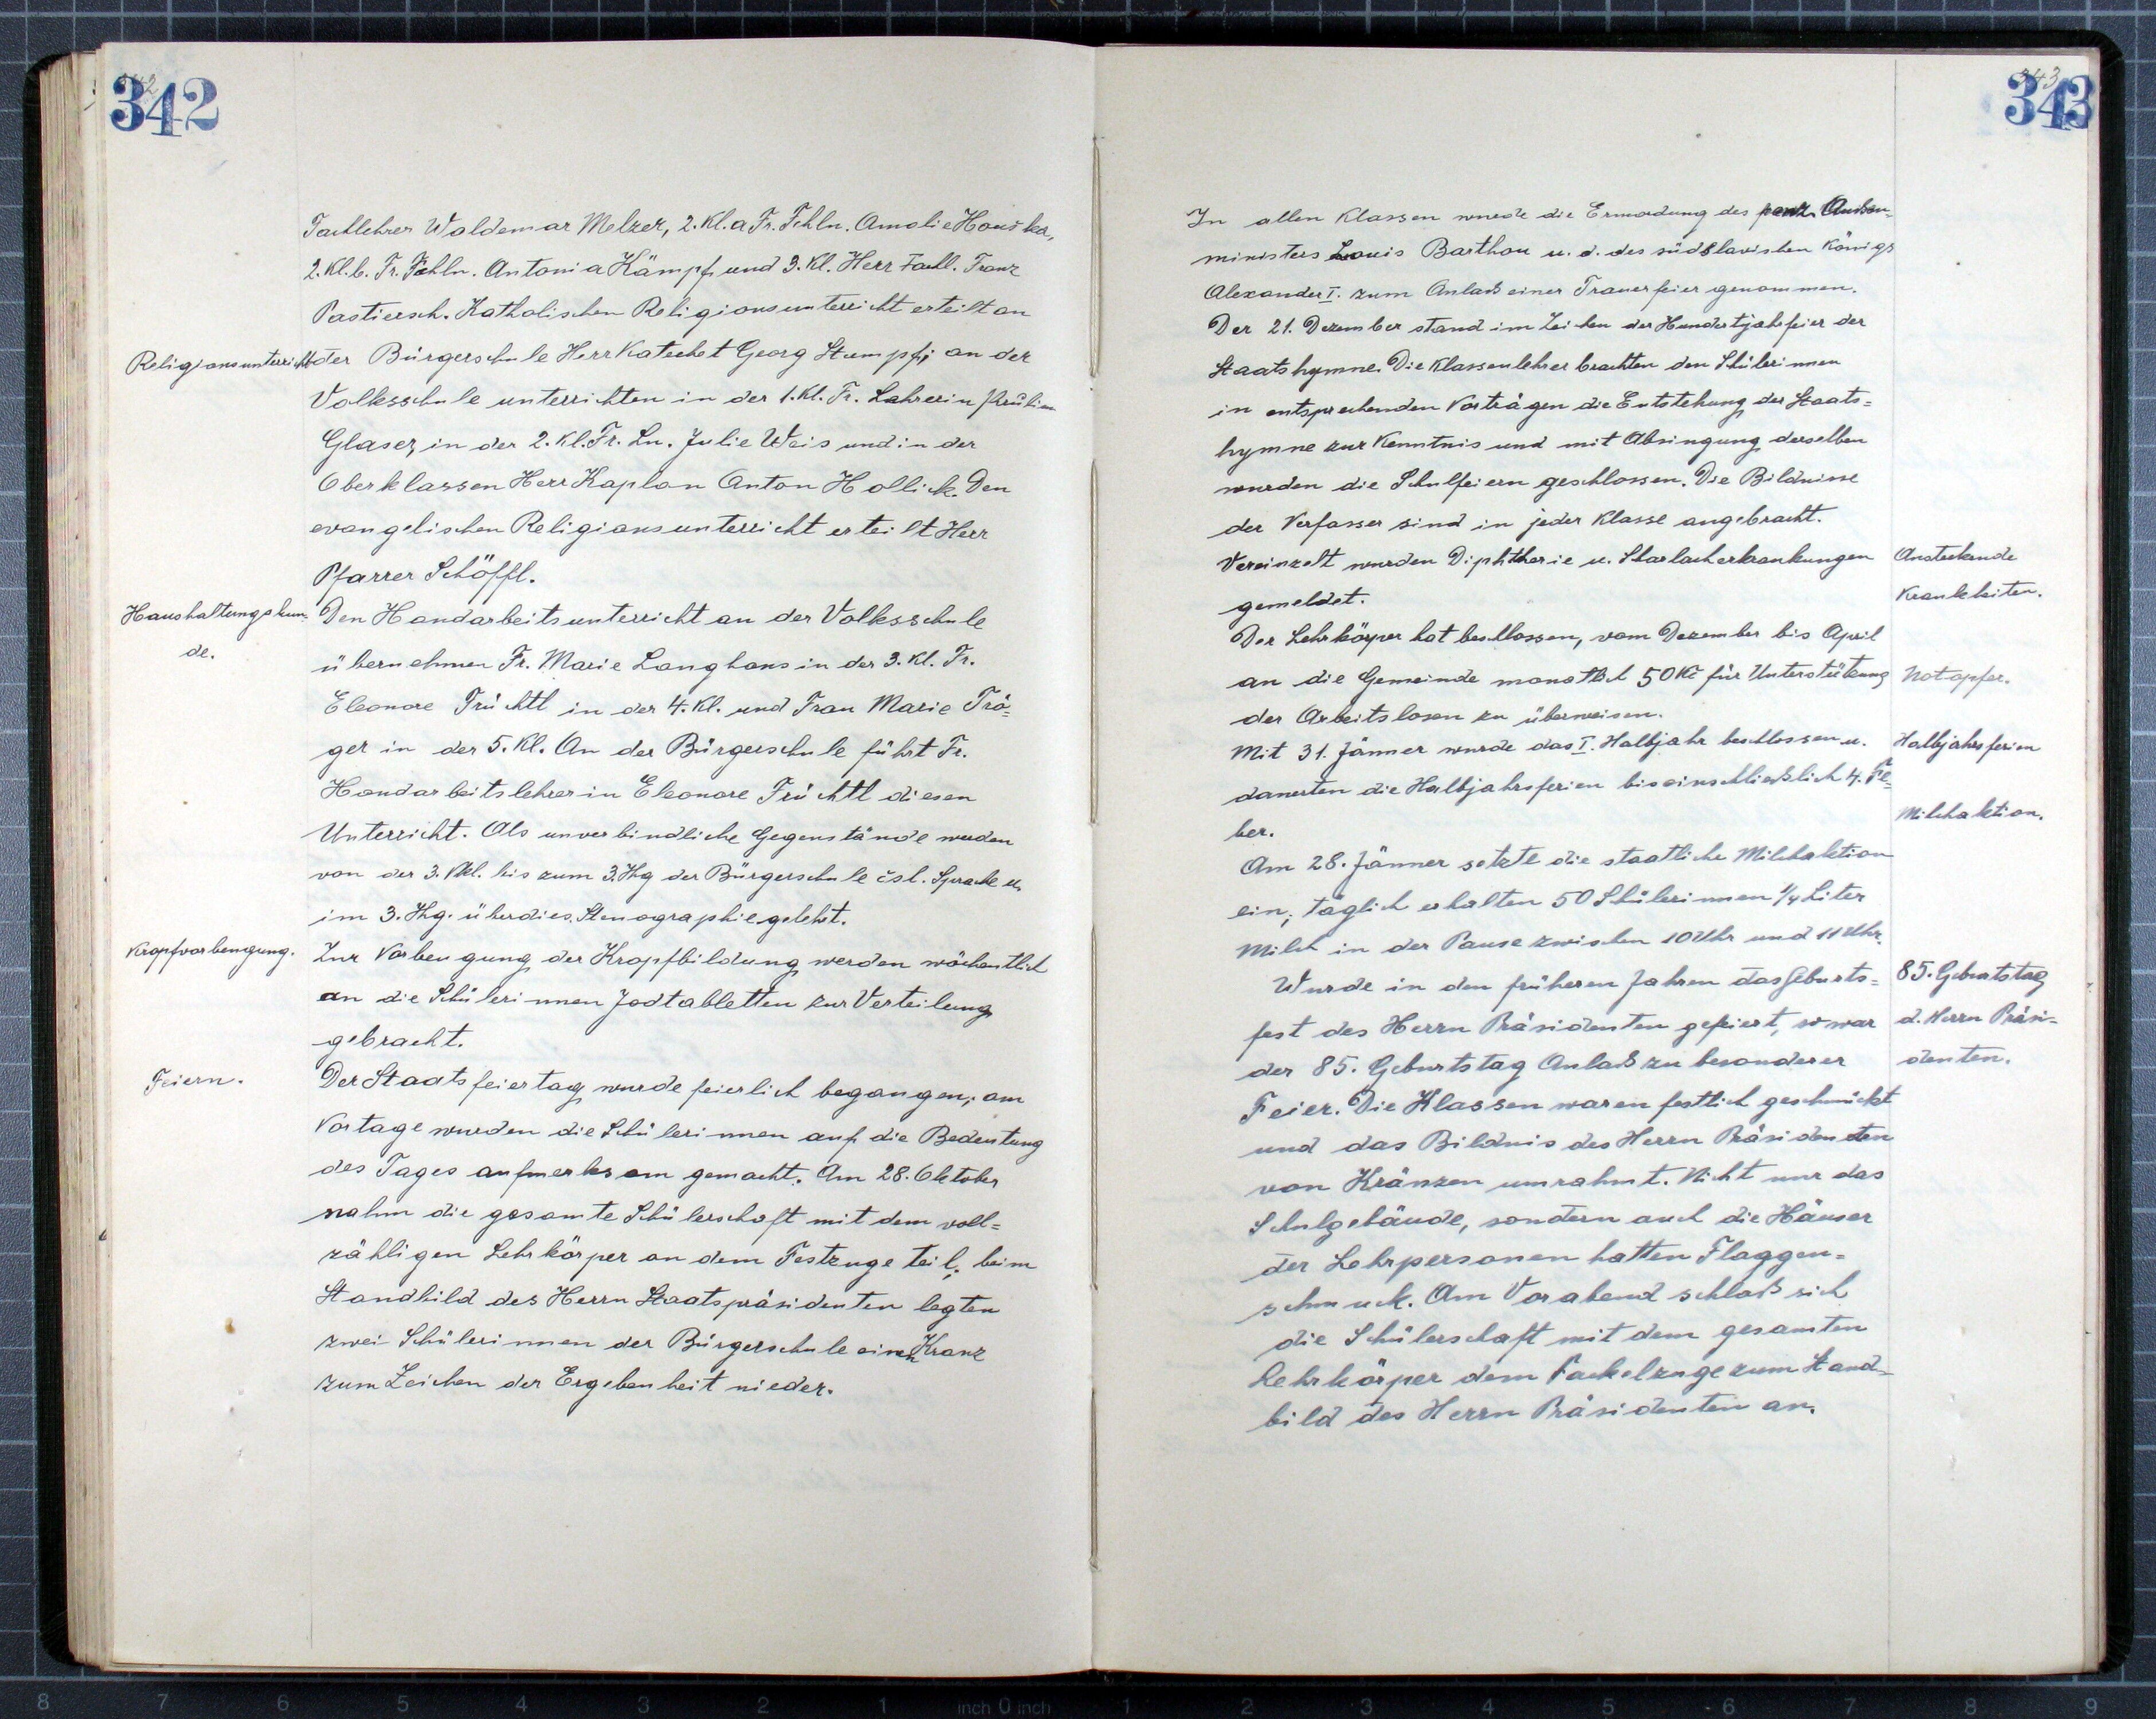 342
Fachlehrer Waldemar Melzer, 2. Kl. a Fr. Fchln. Amalie Houška,
2. Kl. b. Fr. Fchln. Antonia Kämpf und 3. Kl. Herr Fachl. Franz
Pastiersch. Katholischen Religionsunterricht erteilt an
Religionsunterricht
der Bürgerschule Herr Katechet Georg Stumpf; an der
Volksschule unterrichten in der 1. Kl. Fr. Lehrerin
Glaser, in der 2. Kl. Fr. Ln. Julie Weis und in der
Oberklassen Herr Kaplan Anton Hollick. Den
evangelischen Religionsunterricht erteilt Herr
Pfarrer Schöffl.
Haushaltungskun-
de.
Den Handarbeitsunterricht an der Volksschule
übernehmen Fr. Marie Langhans in der 3. Kl. Fr.
Eleonore Früchtl in der 4. Kl. und Frau Marie Trö=
ger in der 5. Kl. An der Bürgerschule führt Fr.
Handarbeitslehrerin Eleonore Früchtl diesen
Unterricht. Als unverbindliche Gegenstände werden
von der 3. Vkl. bis zum 3. Jhg der Bürgerschule čsl. Sprache u.
im 3. Jhg. überdies Stenographie gelehrt.
Kropfvorbeugung.
Zur Vorbeugung der Kropfbildung werden wöchentlich
an die Schülerinnen Jodtabletten zur Verteilung
gebracht.
Feiern.
Der Staatsfeiertag wurde feierlich begangen; am
Vortage wurden die Schülerinnen auf die Bedeutung
des Tages aufmerksam gemacht. Am 28. Oktober
nahm die gesamte Schülerschaft mit dem voll=
zähligen Lehrkörper an dem Festzuge teil; beim
Standbild des Herrn Staatspräsidenten legten
zwei Schülerinnen der Bürgerschule einen Kranz
zum Zeichen der Ergebenheit nieder.
343
In allen Klassen wurde die Ermordung des franz. Außen-
ministers Louis Barthou u. d. des südslavischen Königs
Alexander I. zum Anlaß einer Trauerfeier genommen.
Der 21. Dezember stand im Zeichen der Hundertjahrfeier der
Staatshymne. Die Klassenlehrer brachten den Schülerinnen
in entsprechenden Vorträgen die Entstehung der Staats=
hymne zur Kenntnis und mit Absingung derselben
wurden die Schulfeiern geschlossen. Die Bildnisse
der Verfasser sind in jeder Klasse angebracht.
Vereinzelt wurden Diphtherie u. Sharlacherkrankungen
gemeldet.
Ansteckende
Krankheiten.
Der Lehrkörper hat beschlossen, vom Dezember bis April
an die Gemeinde monatlich 50 Kč für Unterstützung
der Arbeitslosen zu überweisen.
Notopfer.
Mit 31. Jänner wurde das I. Halbjahr beschlossen u.
dauerten die Halbjahrsferien bis einschließlich 4. Fe=
ber.
Halbjahrsferien
Milchaktion.
Am 28. Jänner setzte die staatliche Milchaktion
ein; täglich erhalten 50 Schülerinnen 1/4 Liter
Milch in der Pause zwischen 10 Uhr und 11 Uhr.
Wurde in den früheren Jahren das Geburts=
fest des Herrn Präsidenten gefeiert, so war
der 85. Geburtstag Anlaß zu besonderer
85. Geburtstag
d. Herrn Präsi=
denten.
Feier. Die Klassen waren festlich geschmückt
und das Bildnis des Herrn Präsidenten
von Kränzen umrahmt. Nicht nur das
Schulgebäude, sondern auch die Häuser
der Lehrpersonen hatten Flaggen=
schmuck. Am Vorabend schloß sich
die Schülerschaft mit dem gesamten
Lehrkörper dem Fackelzuge zum Stand=
bild des Herrn Präsidenten an.
8 7 6 5 4 3 2 1 inch 0 inch 1 2 3 4 5 6 7 8 9